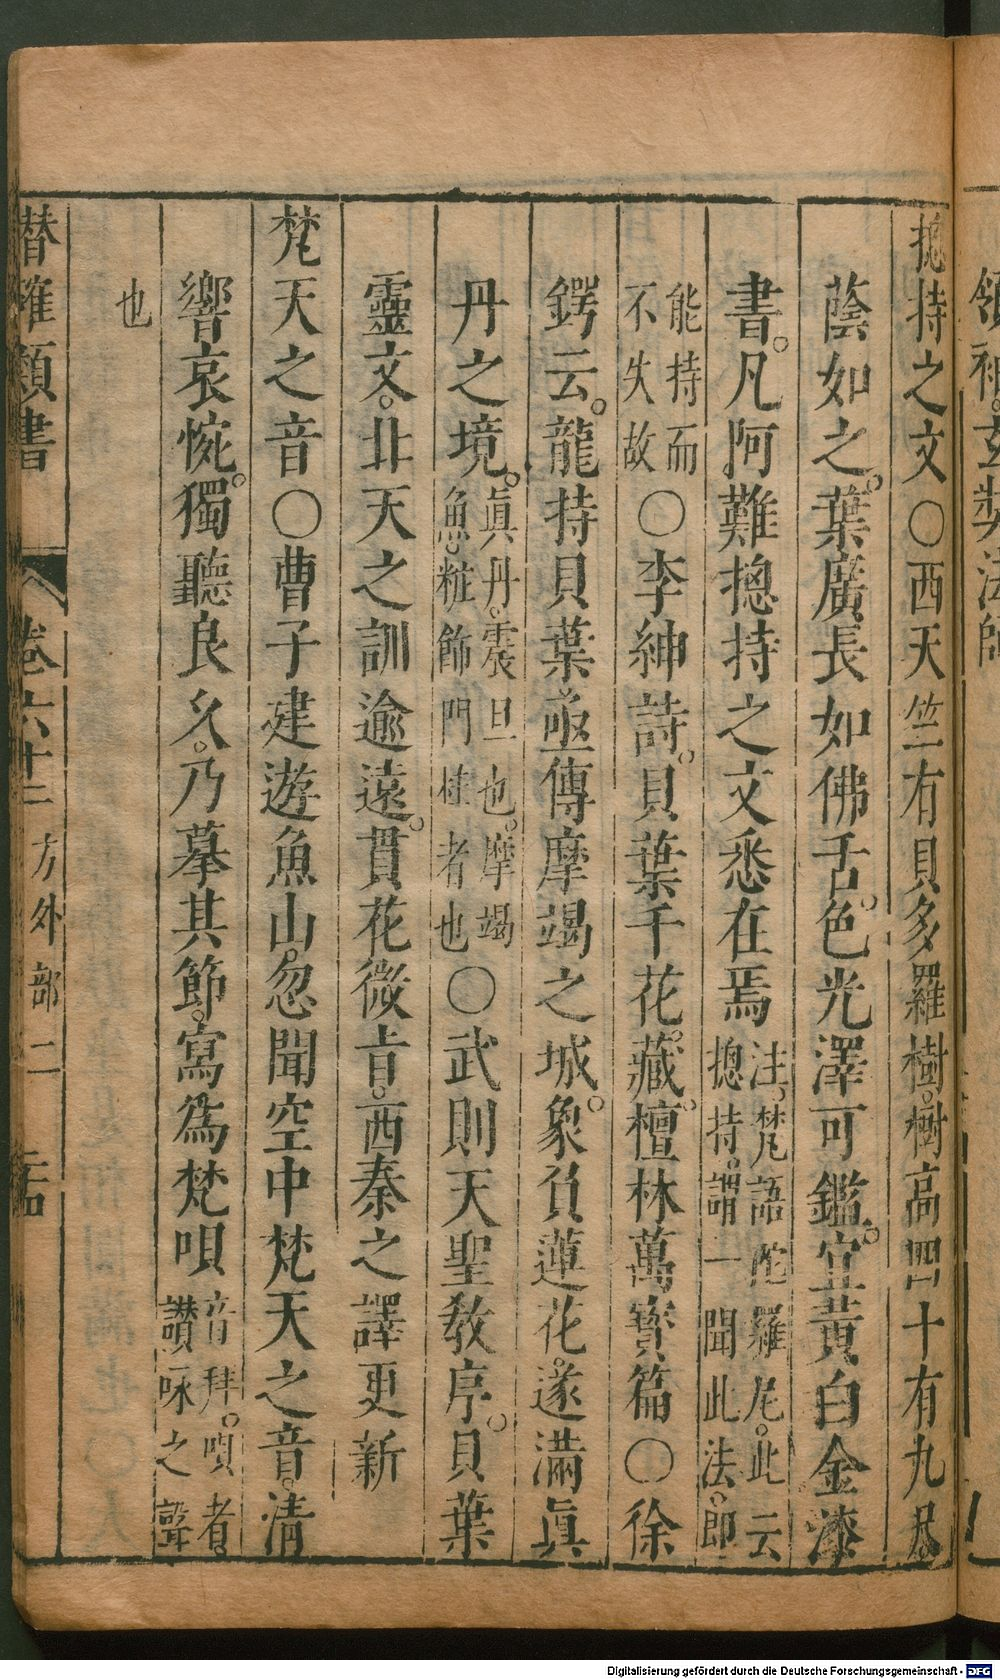 領袖。玄奘法師
摠持之文○西天竺有貝多羅樹。樹高四十有九尺。
蔭如之。葉廣長如佛舌。色光澤可鑑。宜黃白金漆
書。凡阿難摠持之文悉在焉注。梵語陀羅尼。此云摠持。謂一聞此法。即
能持而不失故○李紳詩。貝葉千花藏。檀林萬寶篇○徐
鍔云。龍持貝葉亟傳摩竭之城。象負蓮花。遂滿眞
丹之境。眞丹。震旦也。摩竭魚。粧飾門桂者也○武則天聖教序。貝葉
靈文。北天之訓逾遠。貫花微旨。西秦之譯更新
梵天之音○曹子建遊魚山。忽聞空中梵天之音。清
響哀惋。獨聽良久。乃摹其節。寫爲梵唄音拜。唄者。讃咏之聲
也
潛確類書 卷六十二 方外部二
Digitalisierung gefördert durch die Deutsche Forschungsgemeinschaft - DFG